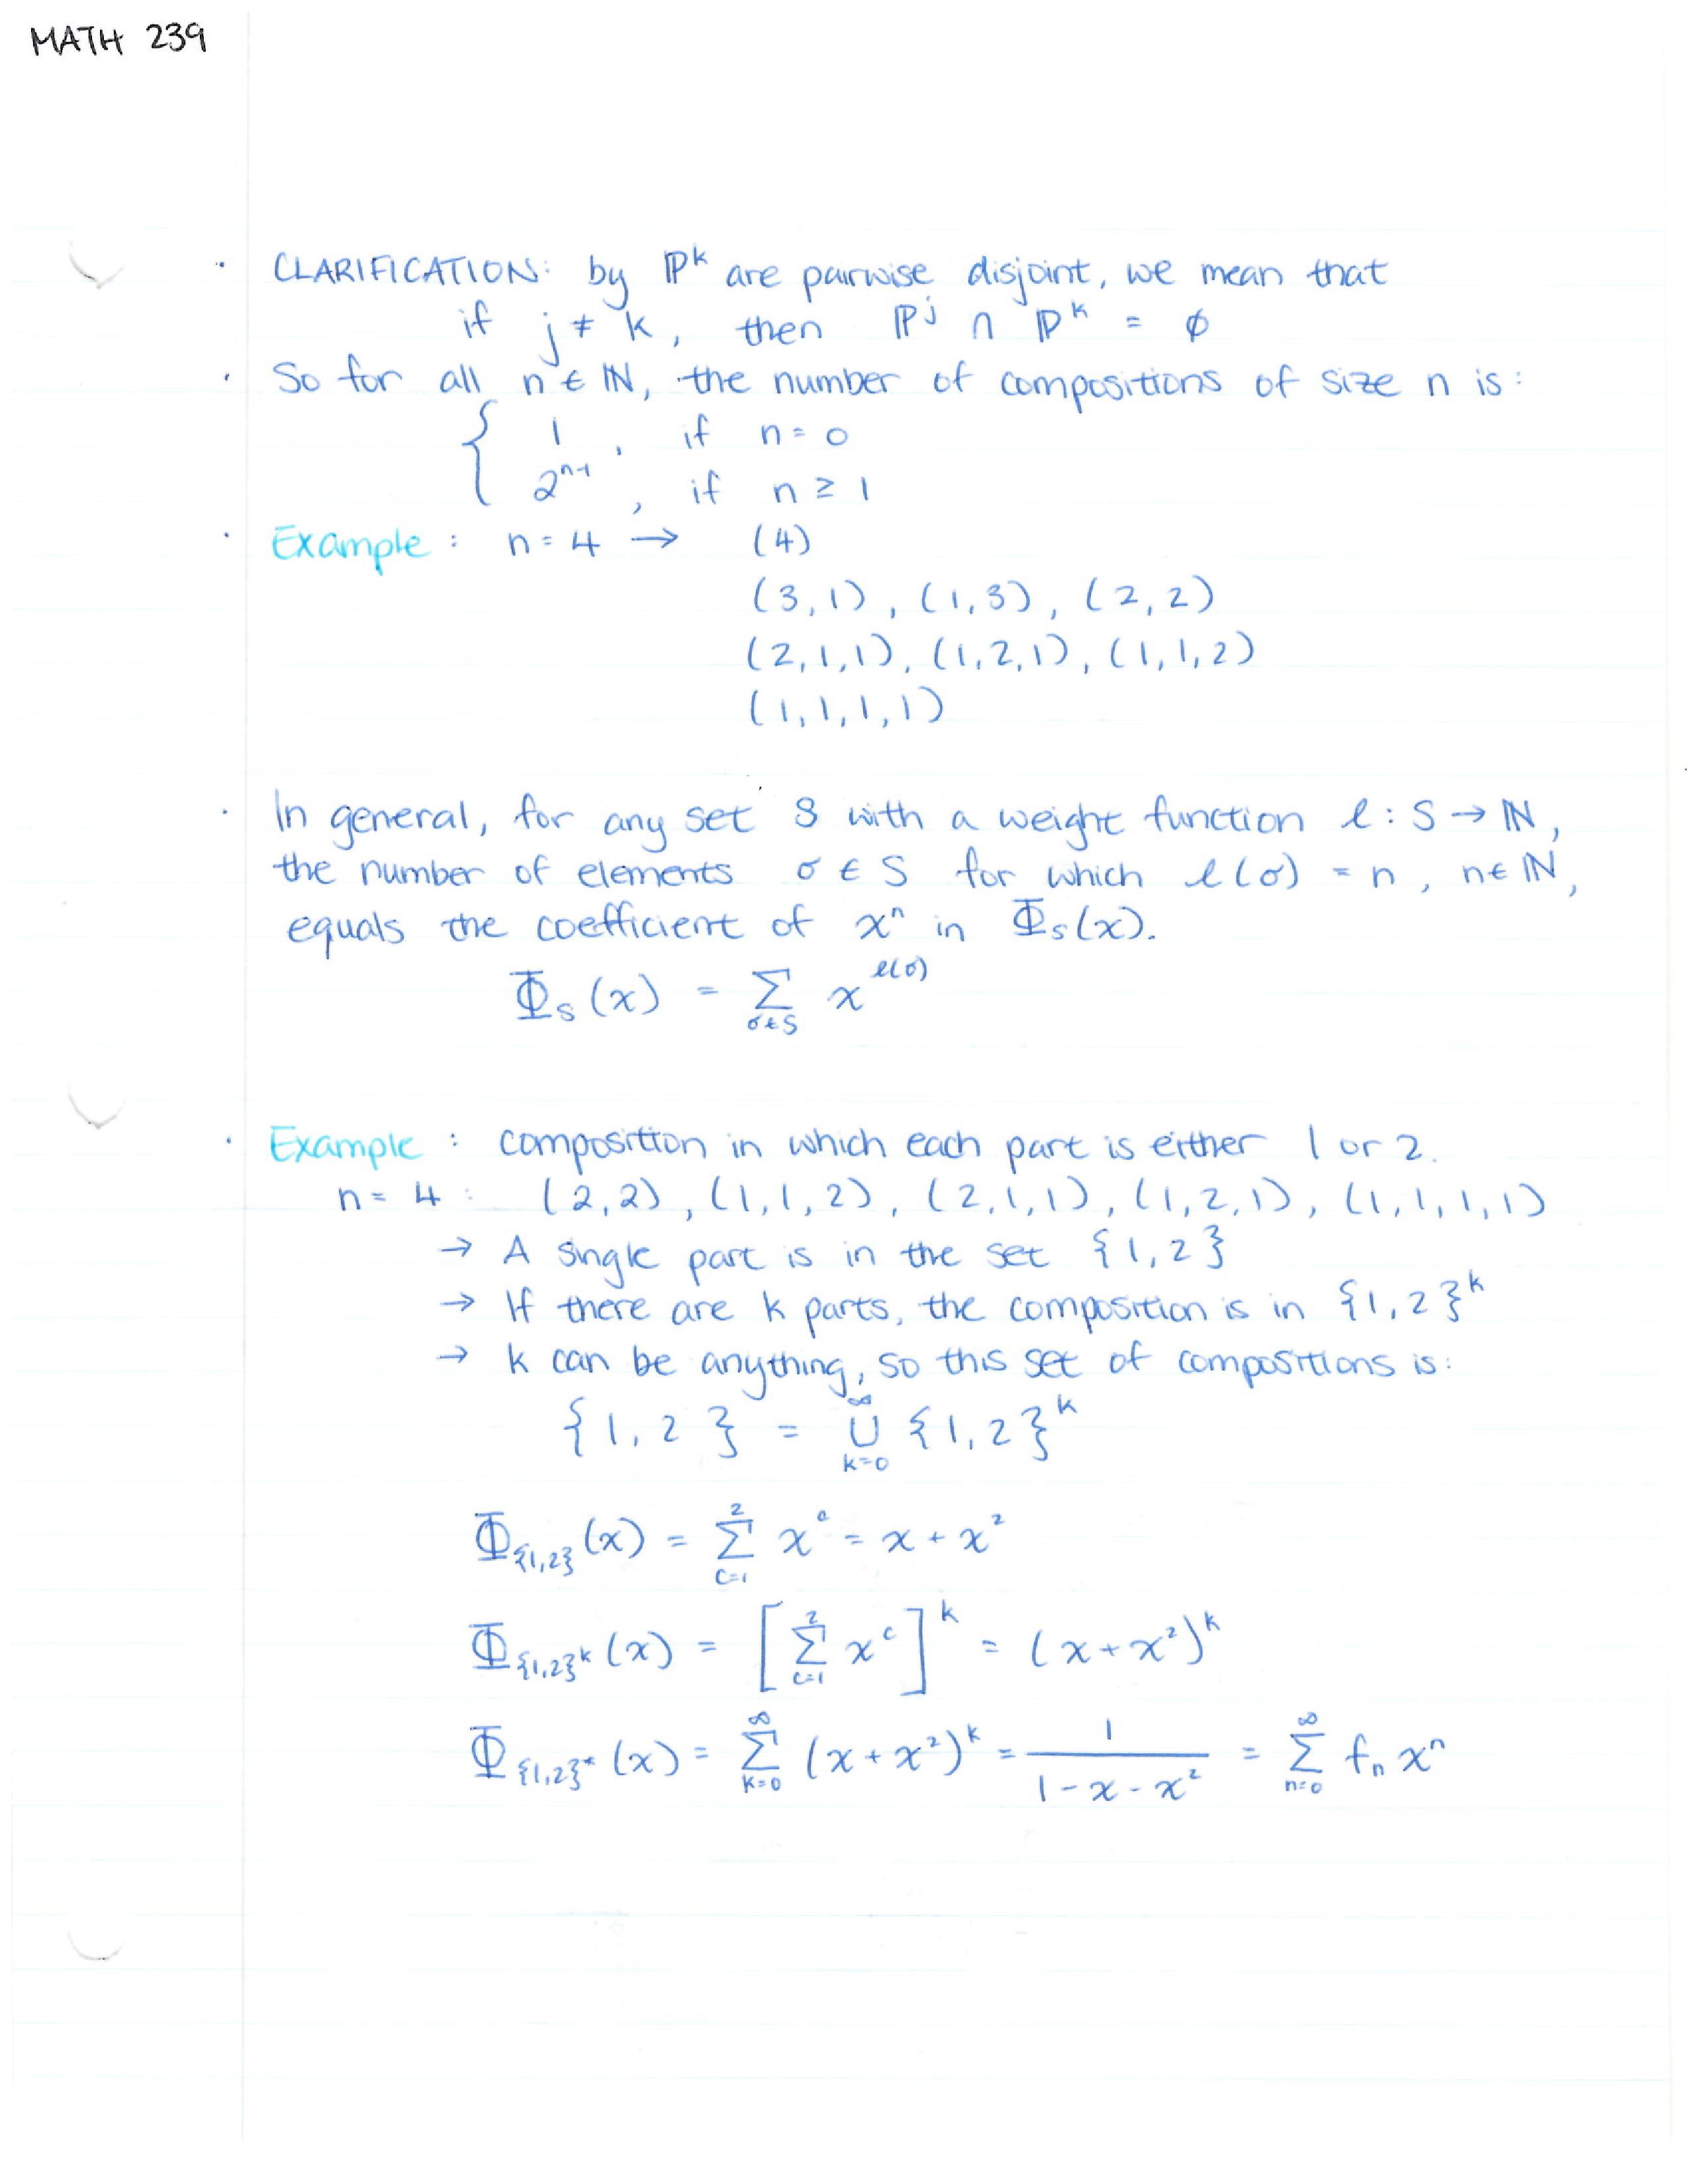 MATH 239
· CLARIFICATION: by ℙ^k are pairwise disjoint, we mean that
if j ≠ k, then ℙ^j ∩ ℙ^k = ∅
· So for all n ∈ ℕ, the number of compositions of size n is:
{ 1, if n = 0
2^{n-1}, if n ≥ 1
· Example: n = 4 → (4)
(3,1), (1,3), (2,2)
(2,1,1), (1,2,1), (1,1,2)
(1,1,1,1)
· In general, for any set S with a weight function l: S → ℕ,
the number of elements σ ∈ S for which l(σ) = n, n ∈ ℕ,
equals the coefficient of x^n in Φ_S(x).
Φ_S(x) = Σ_{σ∈S} x^{l(σ)}
· Example: composition in which each part is either 1 or 2.
n = 4: (2,2), (1,1,2), (2,1,1), (1,2,1), (1,1,1,1)
→ A single part is in the set {1,2}
→ If there are k parts, the composition is in {1,2}^k
→ k can be anything, so this set of compositions is:
{1,2} = ∪_{k=0}^{∞} {1,2}^k
Φ_{{1,2}}(x) = Σ_{c=1}^{2} x^c = x + x^2
Φ_{{1,2}^k}(x) = [Σ_{c=1}^{2} x^c]^k = (x + x^2)^k
Φ_{{1,2}*}(x) = Σ_{k=0}^{∞} (x + x^2)^k = 1/(1 - x - x^2) = Σ_{n=0}^{∞} f_n x^n